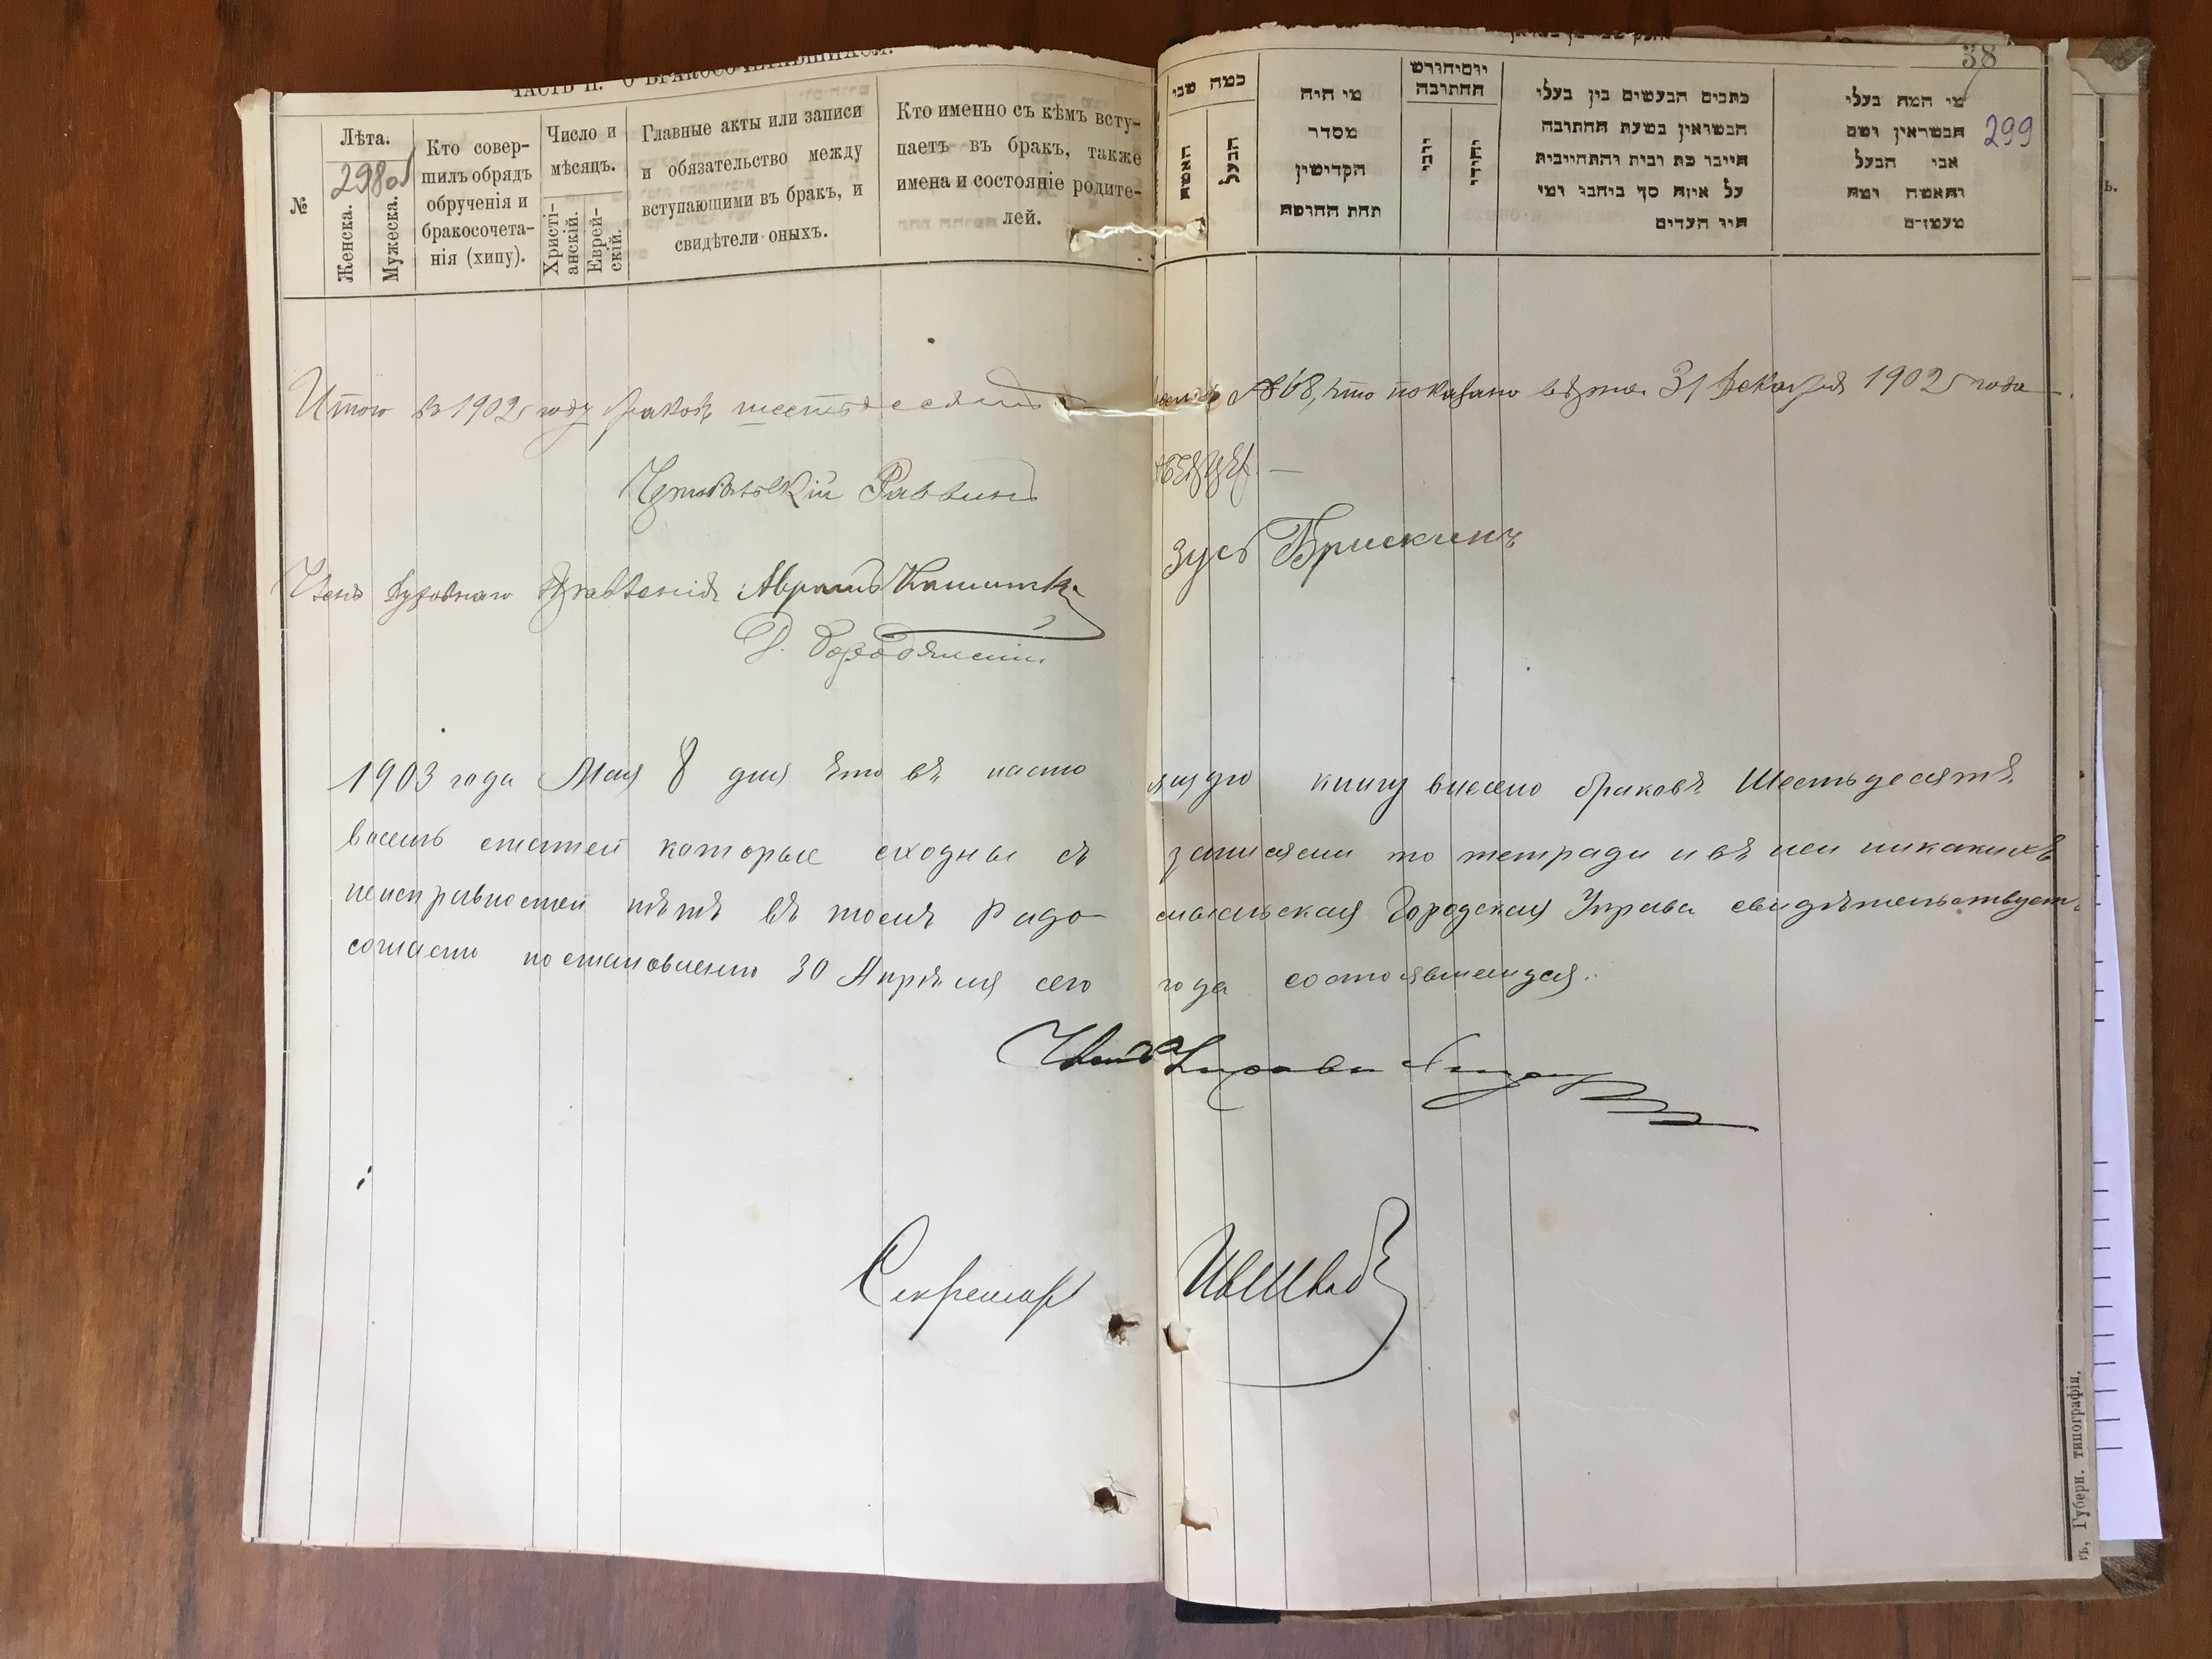 ЧАСТЬ II. О БРАКОСОЧЕТАВШИХСЯ.
№
Лѣта.
298об
Женска.
Мужеска.
Кто совер-
шилъ обрядъ
обрученія и
бракосочета-
нія (хипу).
Число и
мѣсяцъ.
Христі-
анскій.
Еврей-
скій.
Главные акты или записи
и обязательство между
вступающими въ бракъ, и
свидѣтели оныхъ.
Кто именно съ кѣмъ всту-
паетъ въ бракъ, также
имена и состояніе родите-
лей.
38
299
כמה שני
האשה
הבעל
מי היה
מסדר
הקדישין
תחת החופה
יום וחודש
החתונה
כתבים הנעשים בין בעלי
הנשואין בשעת החתונה
על איזה סך ביחבי ומי
היו העדים
מי המה בעלי
הנשואין ושם
אבי הבעל
והאשה ומה
מעמדם
Итого въ 1902 году браковъ шестьдесятъ восемь № 68, что показано вѣрно. 31 Декабря 1902 года
Раввинъ
Зусь Брискинъ
Членъ Духовнаго Правленія Аврамъ
Д. Бородянскій
1903 года Мая 8 дня что въ настоящую книгу внесено браковъ шестьдесятъ
восемь статей которые сходны съ записями по тетради и въ ней никакихъ
неисправностей нѣтъ въ томъ Радомысльская Городская Управа свидѣтельствуетъ
согласно постановленію 30 Апрѣля сего года состоявшемуся.
Членъ Управы
Секретарь
ъ, Губерн. типографія.